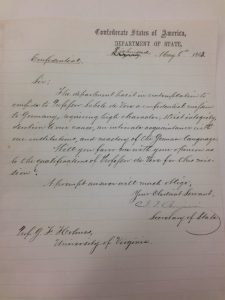 Confederate States of America,
DEPARTMENT OF STATE,
Richmond May 6th 1863
Confidential.
Sir:
The department has it in contemplation to
confide to Professor Schele de Vere a confidential mission
to Germany, requiring high character, strict integrity,
an intimate acquaintance with
our institutions, and mastery of the German language.
Will you favor me with your opinion as
to the qualifications of Professor de Vere for this mis-
sion?
A prompt answer will much oblige,
Your Obedient Servant,
Secretary of State
Prof. G. F. Holmes,
University of Virginia